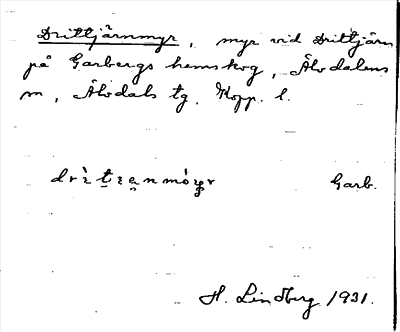 Drittjärnmyr, myr vid Drittjärn
på Garbergs hemskog, Älvdalens
m, Älvdals tg, Kopp. l.
Garb.
H. Lindberg 1931.